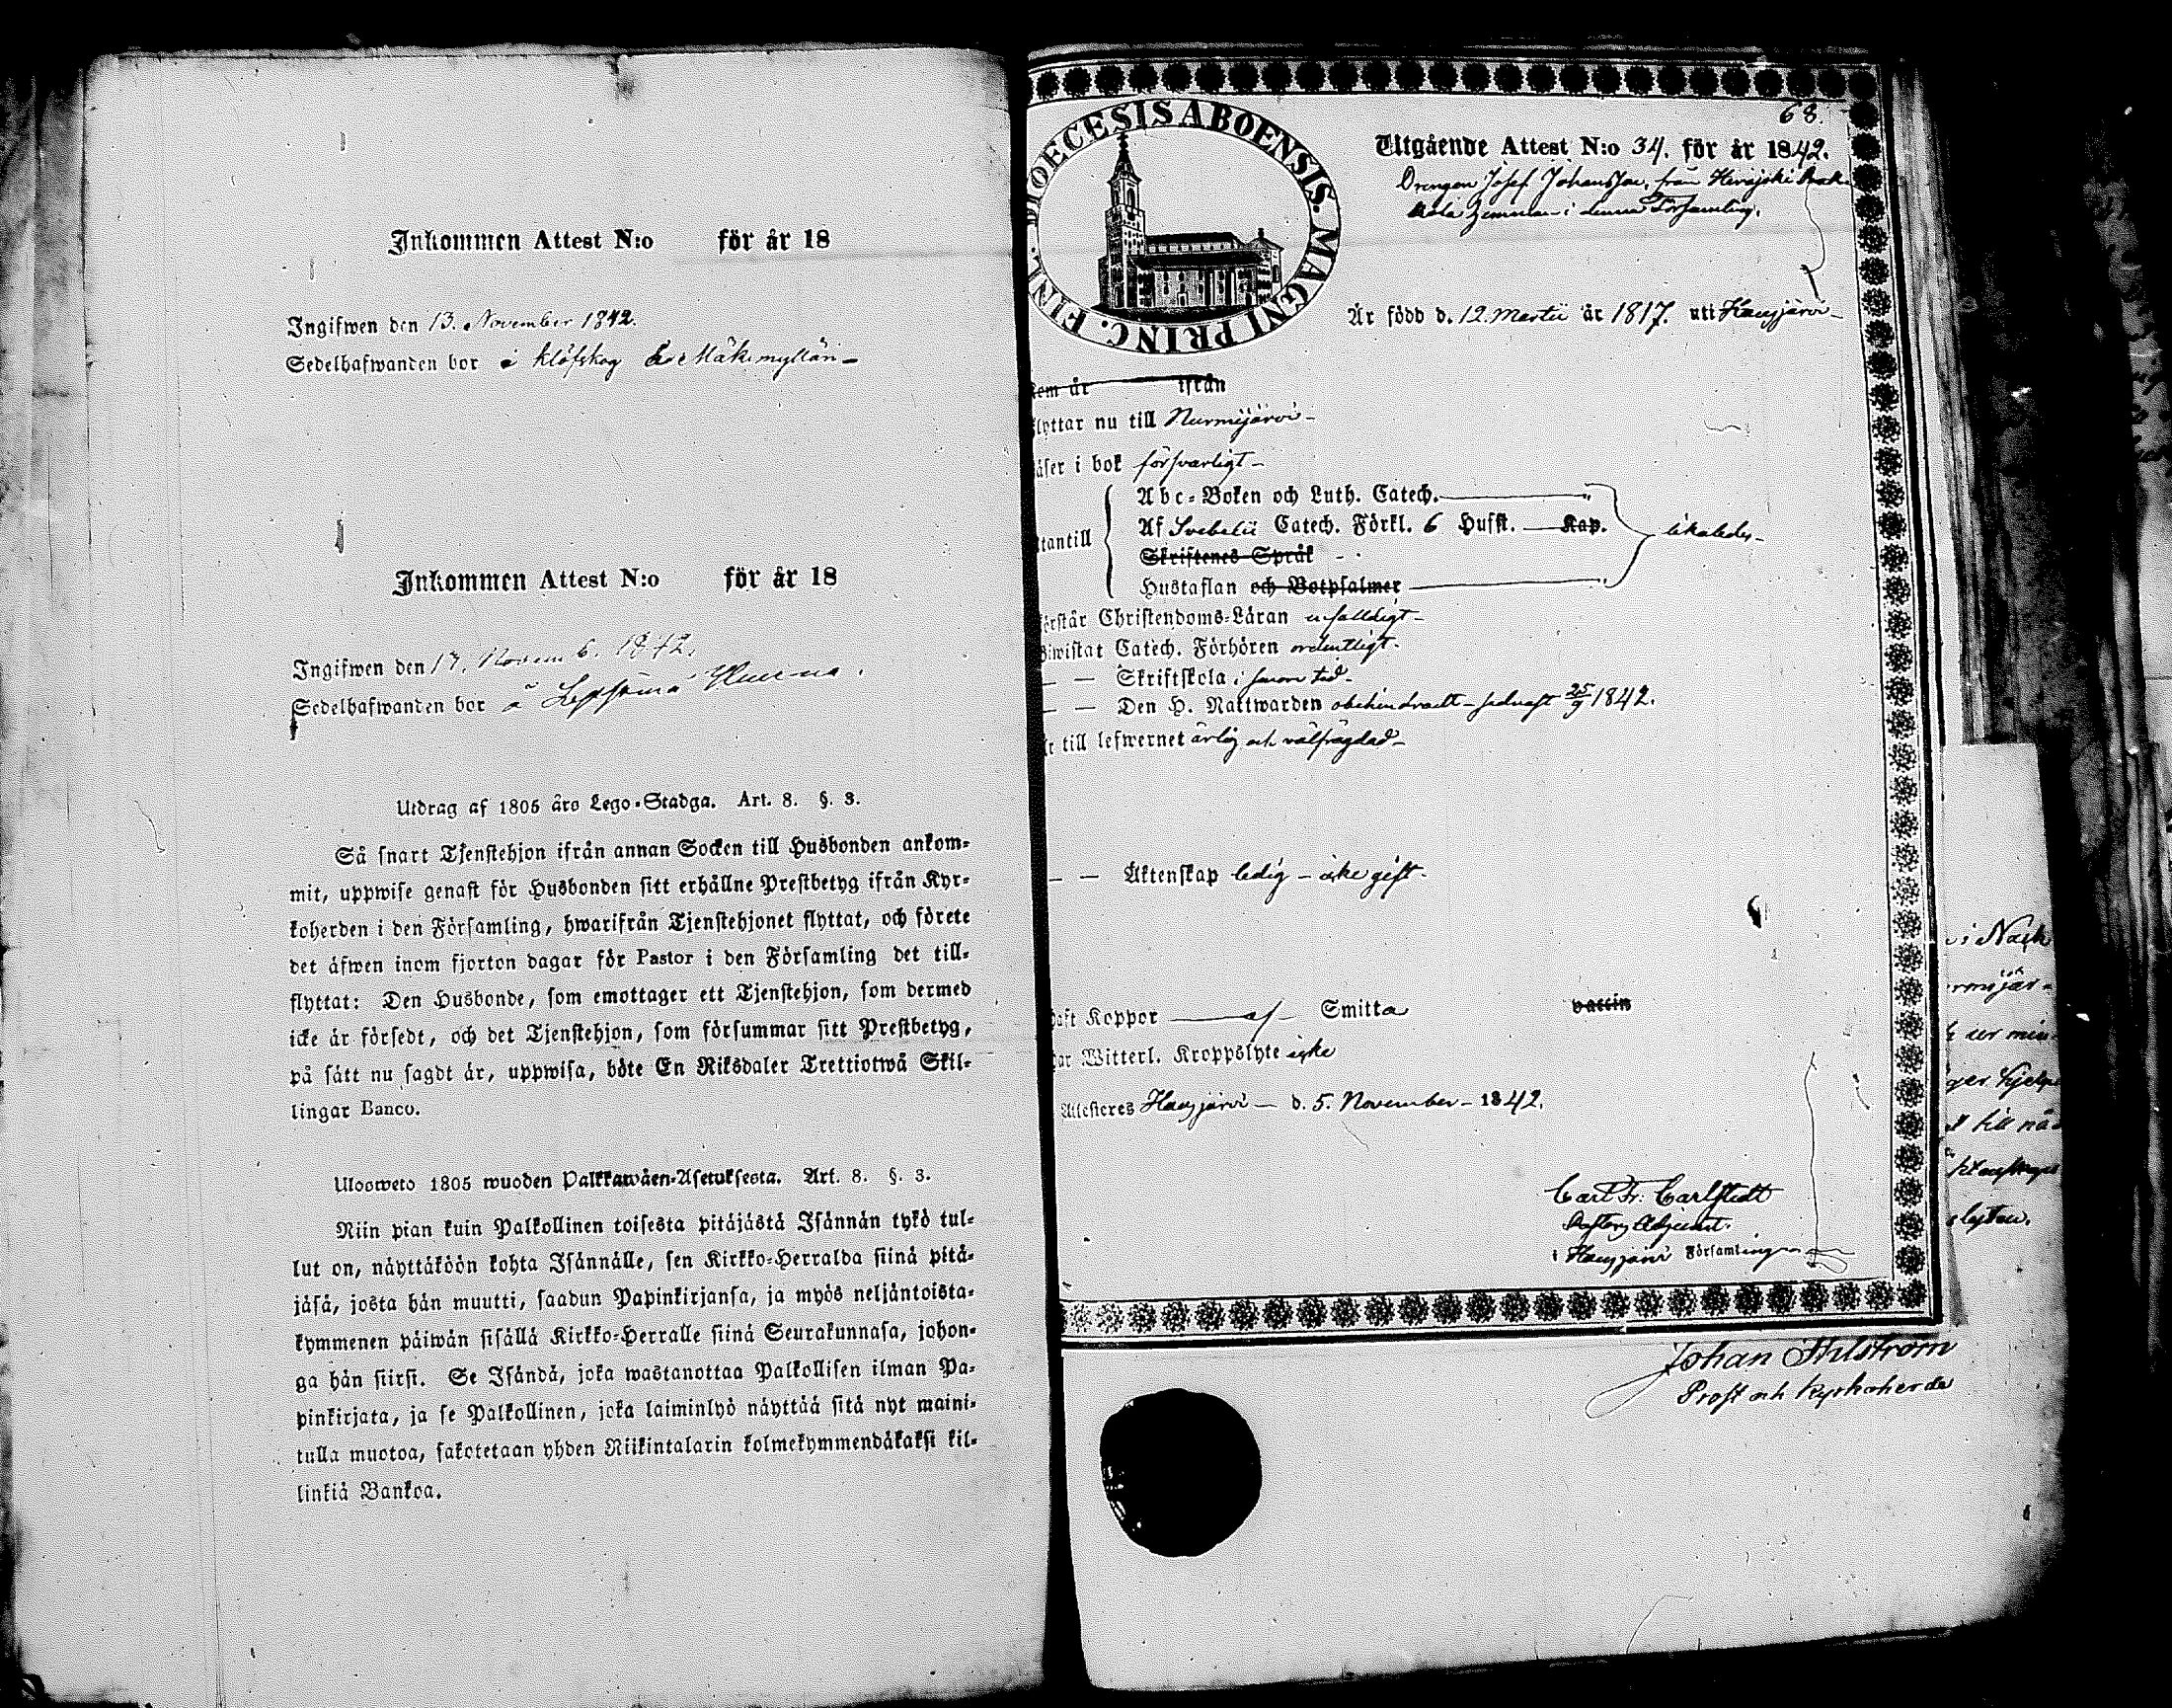 Inkommen Attest N:o för år 18
Ingifwen den 13. November 1842.
Sedelhafwanden bor å Klöfskog Mäkimylläri
Inkommen Attest N:o för år 18
Ingifwen den 17. Novemb. 1842.
Sedelhafwanden bor å Lepsämä
Utdrag af 1805 års Lego-Stadga. Art. 8. §. 3.
Så snart Tjenstehjon ifrån annan Socken till Husbonden ankom-
mit, uppwise genast för Husbonden sitt erhållne Prestbetyg ifrån Kyr-
koherden i den Församling, hwarifrån Tjenstehjonet flyttat, och förete
det äfwen inom fjorton dagar för Pastor i den Församling det till-
flyttat: Den Husbonde, som emottager ett Tjenstehjon, som dermed
icke är försedt, och det Tjenstehjon, som försummar sitt Prestbetyg,
på sätt nu sagdt är, uppwisa, böte En Riksdaler Trettiotwå Skil-
lingar Banco.
Ulosweto 1805 wuoden Palkkawäen-Asetuksesta. Art. 8. §. 3.
Niin pian kuin Palkollinen toisesta pitäjästä Isännän tykö tul-
lut on, näyttäköön kohta Isännälle, sen Kirkko-Herralda siinä pitä-
jäsä, josta hän muutti, saadun Papinkirjansa, ja myös neljäntoista-
kymmenen päiwän sisällä Kirkko-Herralle siinä Seurakunnasa, johon-
ga hän siirsi. Se Isändä, joka wastanottaa Palkollisen ilman Pa-
pinkirjata, ja se Palkollinen, joka laiminlyö näyttää sitä nyt maini-
tulla muotoa, sakotetaan yhden Riikintalarin kolmekymmendäkaksi kil-
linkiä Bankoa.
68.
DIOECESIS ABOENSIS. MAGNI PRINC. FINL.
Utgående Attest N:o 34. för år 1842.
Drengen Josef Johansson, från Herajoki
hemman i denna Församling.
Är född d. 12. Martii år 1817. uti Hausjärvi
kom år ifrån
flyttar nu till Nurmijärvi
läser i bok försvarligt
Abc-Boken och Luth. Catech.
utantill Af Svebelii Catech. Förkl. 6 Hufst. Kap. likaledes
Skriftenes Språk
Hustaflan och Botpsalmer
förstår Christendoms-Läran enfaldigt
Biwistat Catech. Förhören ordentligt.
— — Skriftskola i sinom tid
— — Den H. Nattwarden obehindradt sednast 25/9 1842.
är till lefwernet ärlig och välfrägdad
— — Äktenskap ledig icke gift.
haft Koppor af Smitta vaccin
har Witterl. Kroppslyte icke
Attesteres Hausjärvi d. 5. November 1842.
Carl Fr. Carlstedt
Pastors Adjunct.
i Hausjärvi Församling
Johan Ahlström
Prost och Kyrkoherde